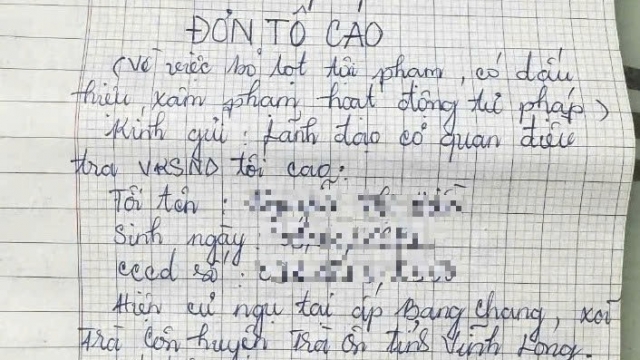 ĐƠN TỐ CÁO
(Về việc bỏ lọt tội phạm, có dấu
hiệu, xâm phạm hoạt động tư pháp)
Kính gửi: Lãnh đạo cơ quan điều
tra VKSND tối cao:
Tôi tên:
Sinh ngày:
cccd số:
Hiện cư ngụ tại ấp Bang chang, xã
Trà Côn huyện Trà Ôn tỉnh Vĩnh Long.